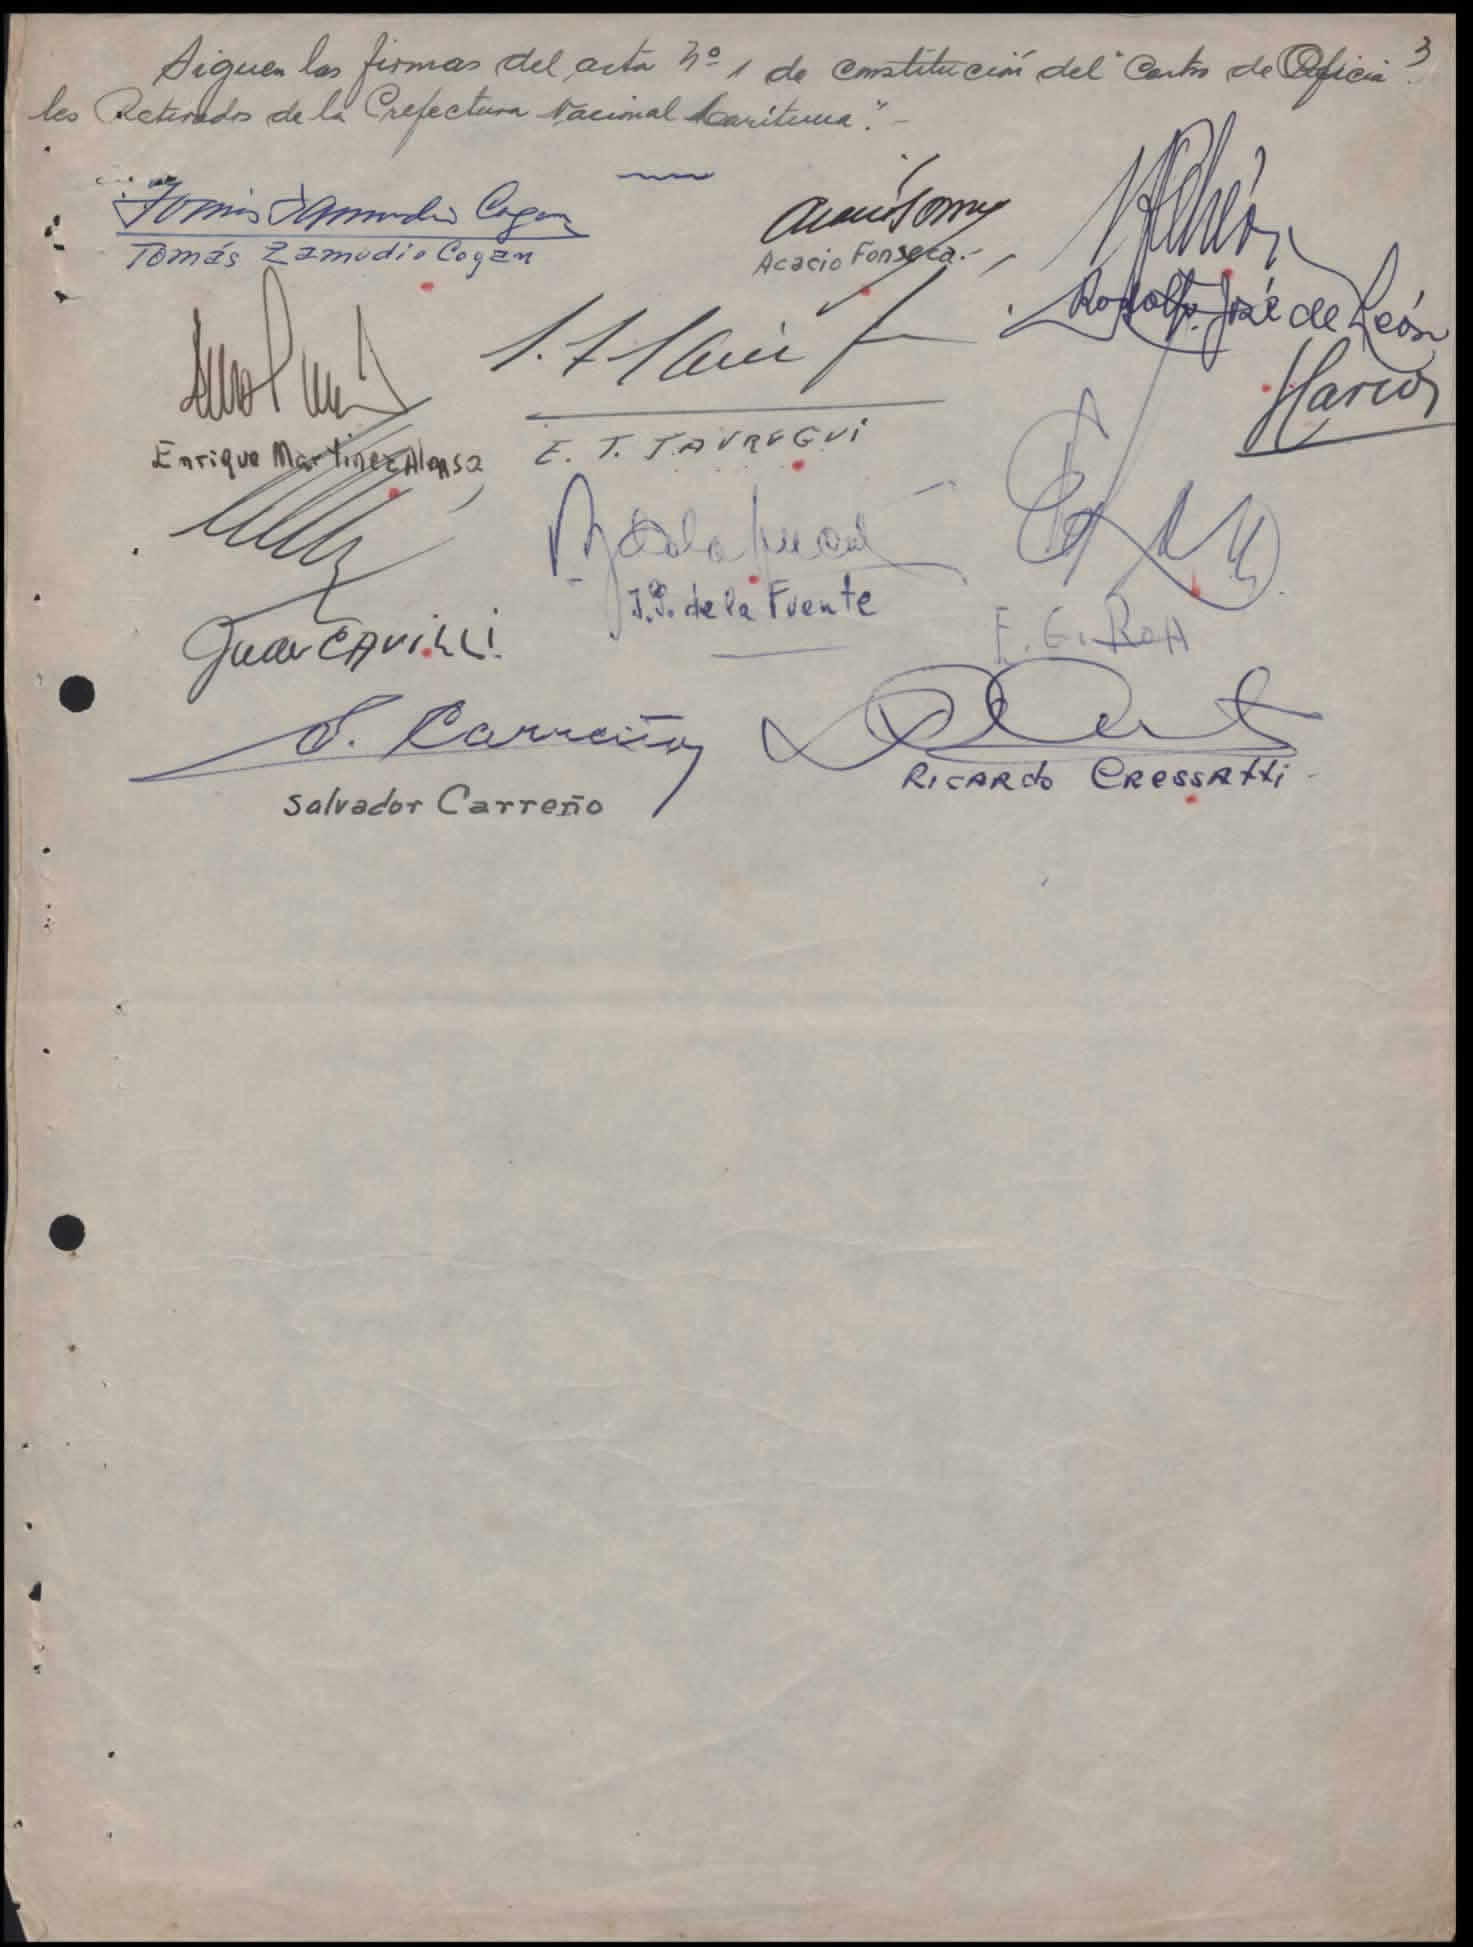 3
Siguen las firmas del acta Nº 1 de constitución del "Centro de Oficia
les Retirados de la Prefectura Nacional Marítima". -
Tomás Zamudio Cogan
Tomás Zamudio Cogan
Acacio Fonseca.-
Rodolfo José de León
Enrique Martinez Alonso
E. T. JAUREGUI
J. J. de la Fuente
Juan CAVILLI
F. G. ROA
S. Carreño
Salvador Carreño
RICARDO CRESSATTI -